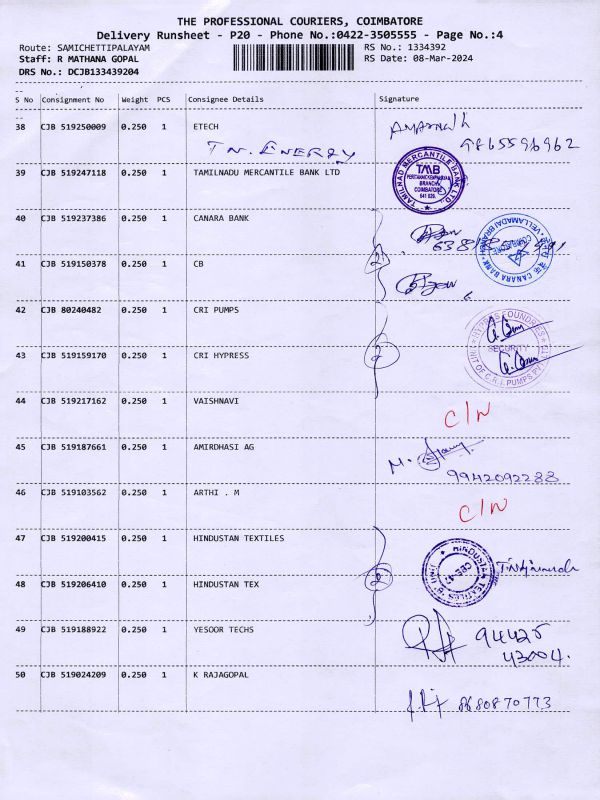 THE PROFESSIONAL COURIERS, COIMBATORE
Delivery Runsheet - P20 - Phone No.:0422-3505555 - Page No.:4
Route: SAMICHETTIPALAYAM RS No.: 1334392
Staff: R MATHANA GOPAL RS Date: 08-Mar-2024
DRS No.: DCJB133439204
S No Consignment No Weight PCS Consignee Details Signature
38 CJB 519250009 0.250 1 ETECH
TN. ENERGY 9865596962
39 CJB 519247118 0.250 1 TAMILNADU MERCANTILE BANK LTD
TAMILNAD MERCANTILE BANK LTD.
TMB
BRANCH
COIMBATORE
641 029.
40 CJB 519237386 0.250 1 CANARA BANK
CANARA BANK VELLAMADAI BRANCH
COIMBATORE
2
41 CJB 519150378 0.250 1 CB
42 CJB 80240482 0.250 1 CRI PUMPS
HYPRES FOUNDRIES
SECURITY
UNIT OF C.R.I. PUMPS PVT
2
43 CJB 519159170 0.250 1 CRI HYPRESS
44 CJB 519217162 0.250 1 VAISHNAVI
C/N
45 CJB 519187661 0.250 1 AMIRDHASI AG
9942092288
46 CJB 519103562 0.250 1 ARTHI . M
C/N
47 CJB 519200415 0.250 1 HINDUSTAN TEXTILES
HINDUSTAN TEXTILES
2
48 CJB 519206410 0.250 1 HINDUSTAN TEX
49 CJB 519188922 0.250 1 YESOOR TECHS
94425
43004.
50 CJB 519024209 0.250 1 K RAJAGOPAL
8680870773